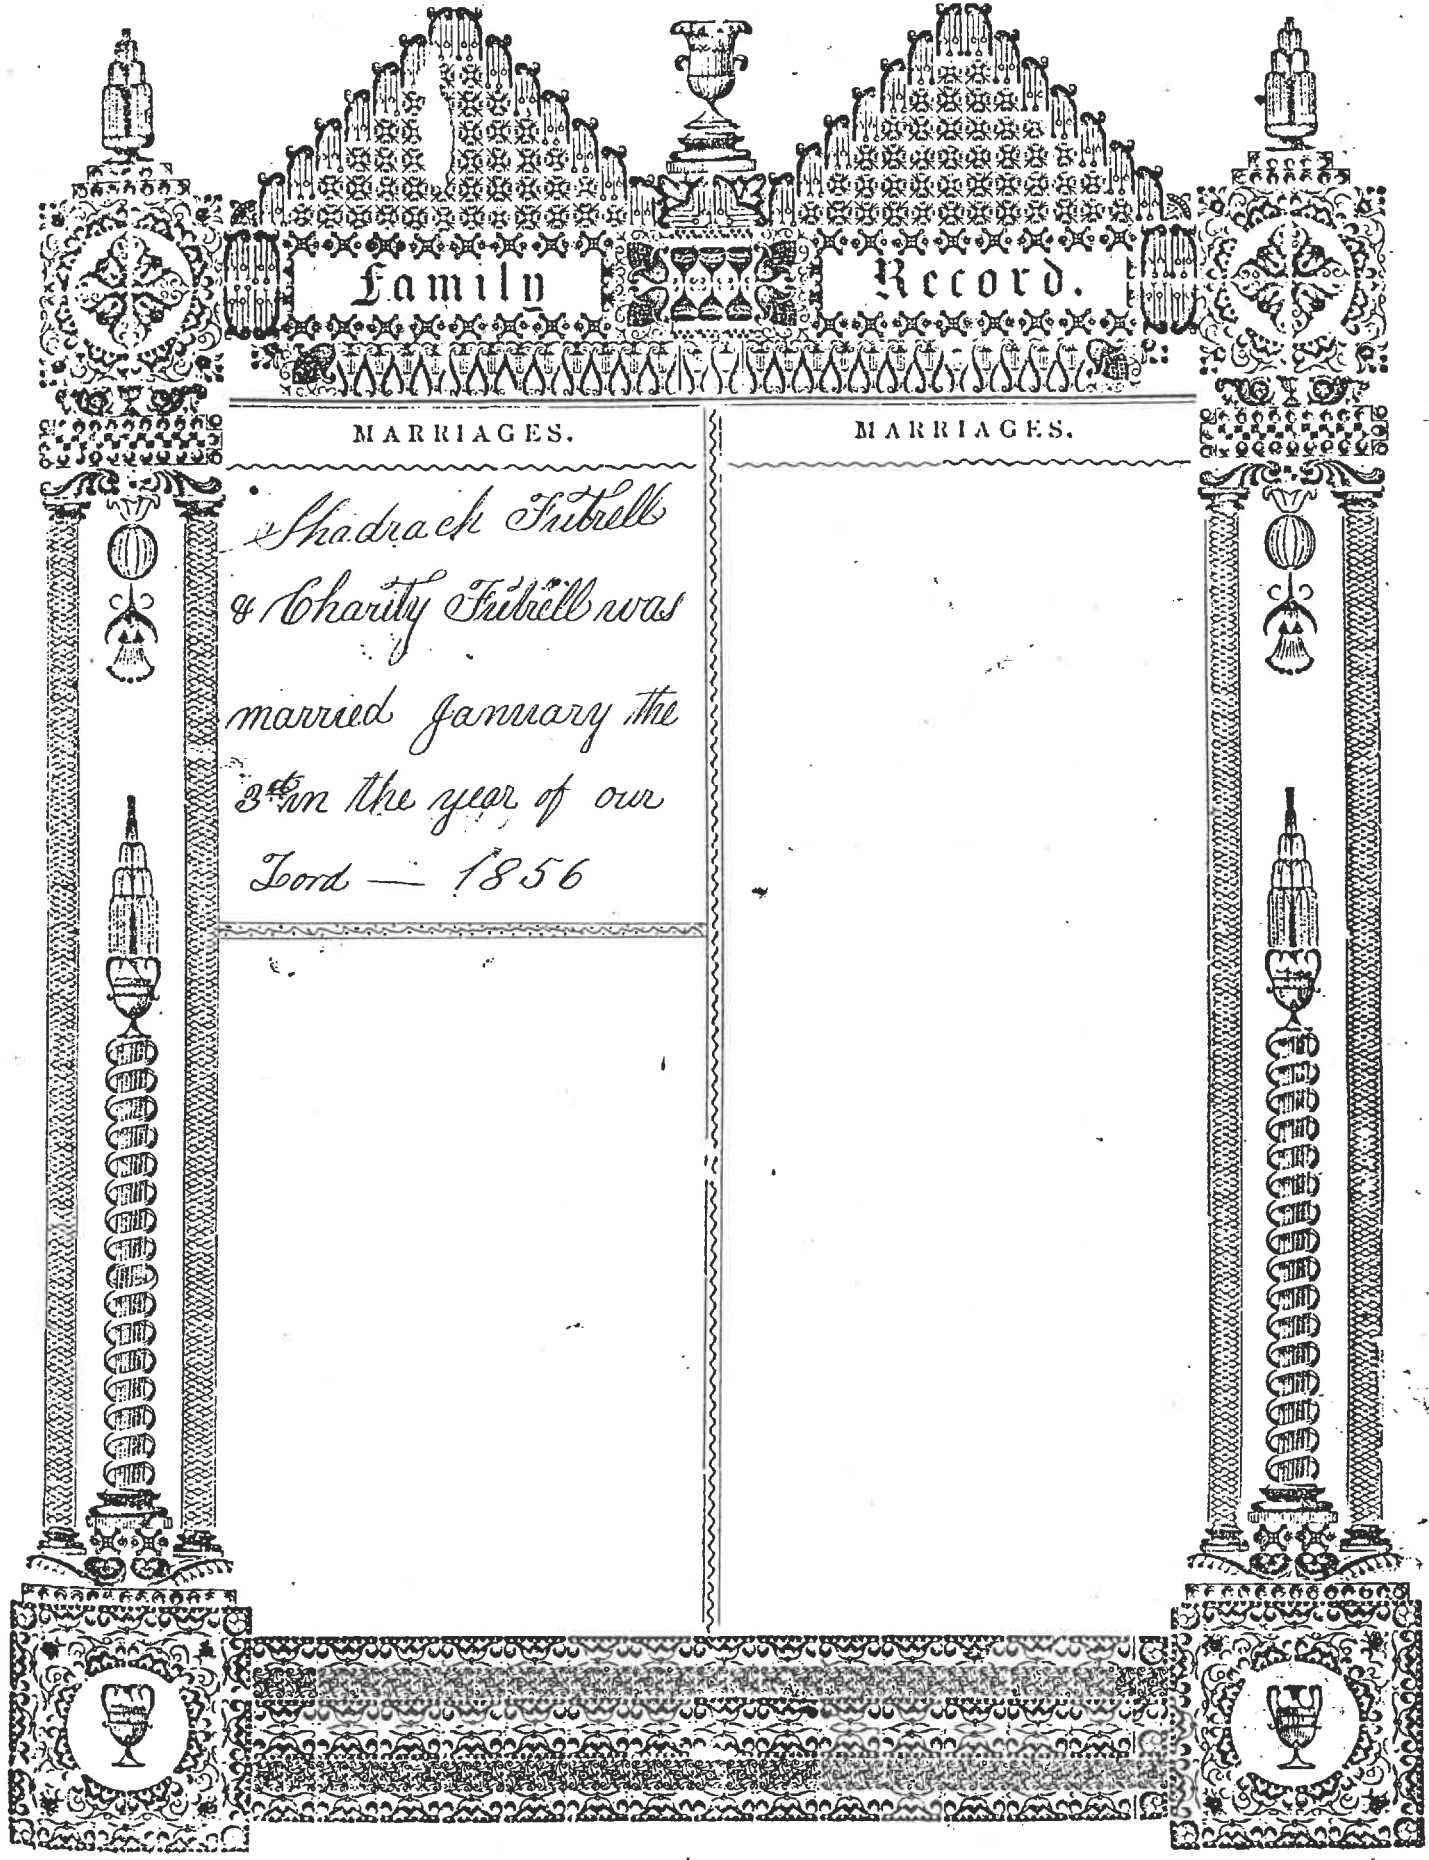 Family Record.
MARRIAGES.
Shadrach Futrell
& Charity Futrell was
married January the
3rd in the year of our
Lord — 1856
MARRIAGES.